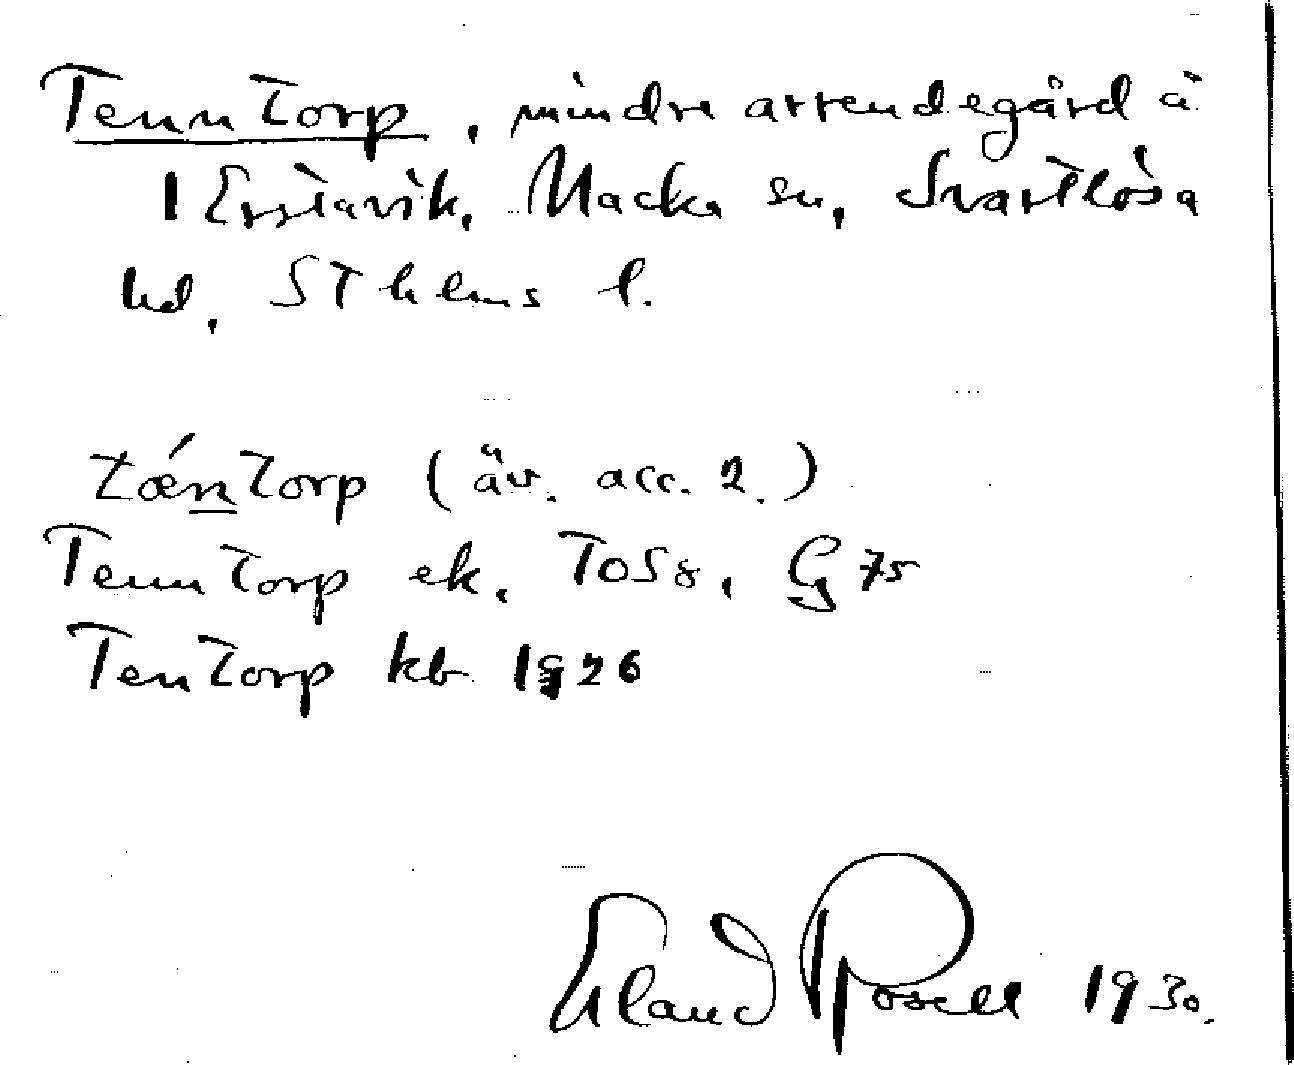 Tenntorp, mindre arrendegård å
1 Erstavik, Nacka sn, Svartlösa
hd, Sthlms l.
tǽntorp (äv. acc. 2.)
Tenntorp ek, TOS8, G 75
Tentorp kb 1926
Erland Rosell 1930.